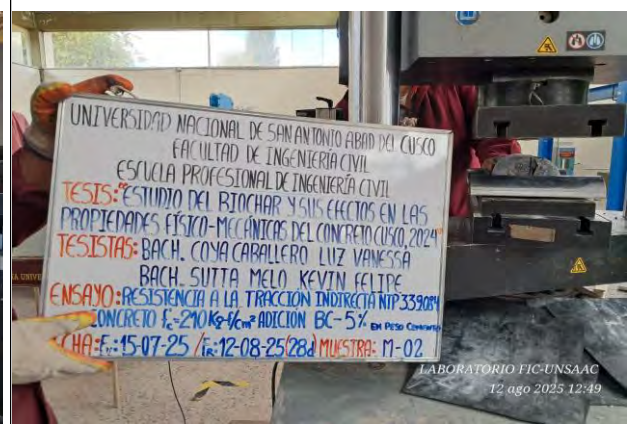 UNIVERSIDAD NACIONAL DE SAN ANTONIO ABAD DEL CUSCO
FACULTAD DE INGENIERÍA CIVIL
ESCUELA PROFESIONAL DE INGENIERÍA CIVIL
TESIS: "ESTUDIO DEL BIOCHAR Y SUS EFECTOS EN LAS
PROPIEDADES FÍSICO-MECÁNICAS DEL CONCRETO CUSCO, 2024"
TESISTAS: BACH. COYA CABALLERO LUZ VANESSA
BACH. SUTTA MELO KEVIN FELIPE
ENSAYO: RESISTENCIA A LA TRACCIÓN INDIRECTA NTP 339.084
CONCRETO f'c=210 Kg-f/cm² ADICIÓN BC-5% EN PESO CEMENTO
CHA: FV:15-07-25 / FR:12-08-25 (28d) MUESTRA: M-02
LABORATORIO FIC-UNSAAC
12 ago 2025 12:49